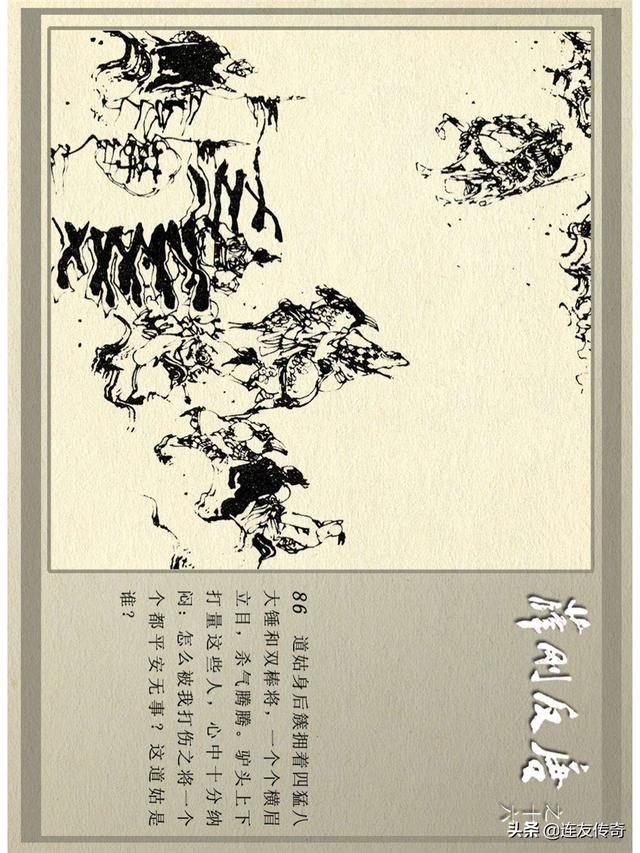 薛刚反唐
之十六
86 道姑身后簇拥着四猛八
大锤和双棒将，一个个横眉
立目，杀气腾腾。驴头上下
打量这些人，心中十分纳
闷：怎么被我打伤之将一个
个都平安无事？这道姑是
谁？
头条 @连友传奇